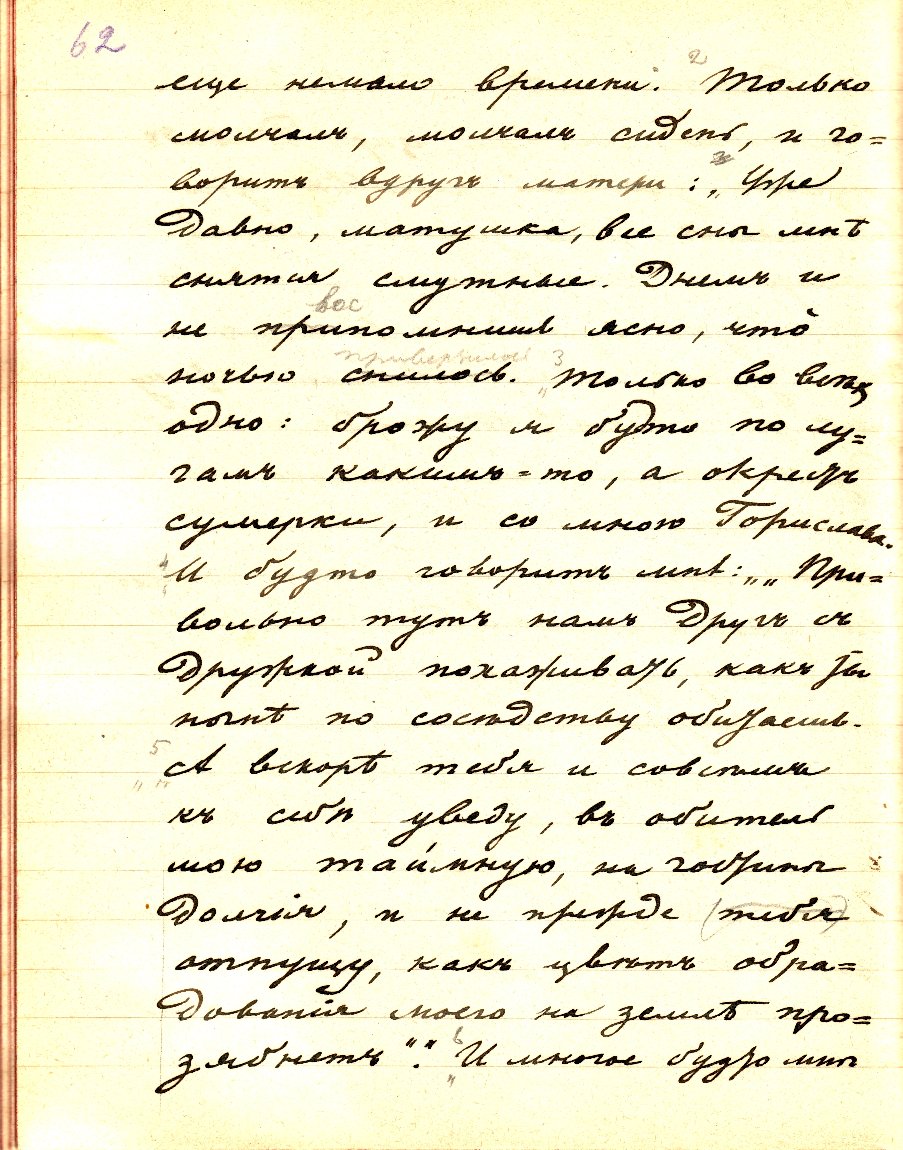 62
еще немало времени. 2 Только
молчалъ, молчалъ сидень, и го=
воритъ вдругъ матери: „Уже
давно, матушка, все сны мнѣ
снятся смутные. Днемъ и
вос
не припомнишь ясно, что
ночью снилось. 3 Только во всѣхъ
одно: брожу я будто по лу=
гамъ какимъ=то, а окрестъ
сумерки, и со мною Горислава.
4 И будто говоритъ мнѣ: „„При=
вольно тутъ намъ другъ съ
дружкой похаживать, какъ ты
нынѣ по сосѣдству обитаешь.
5 А вскорѣ тебя и совсѣмъ
къ себѣ уведу, въ обитель
мою таймную, на годины
долгія, и не прежде (тебя)
отпущу, какъ цвѣтъ обра=
дованія моего на землѣ про=
зябнетъ“.“ 6 И многое будто мнѣ